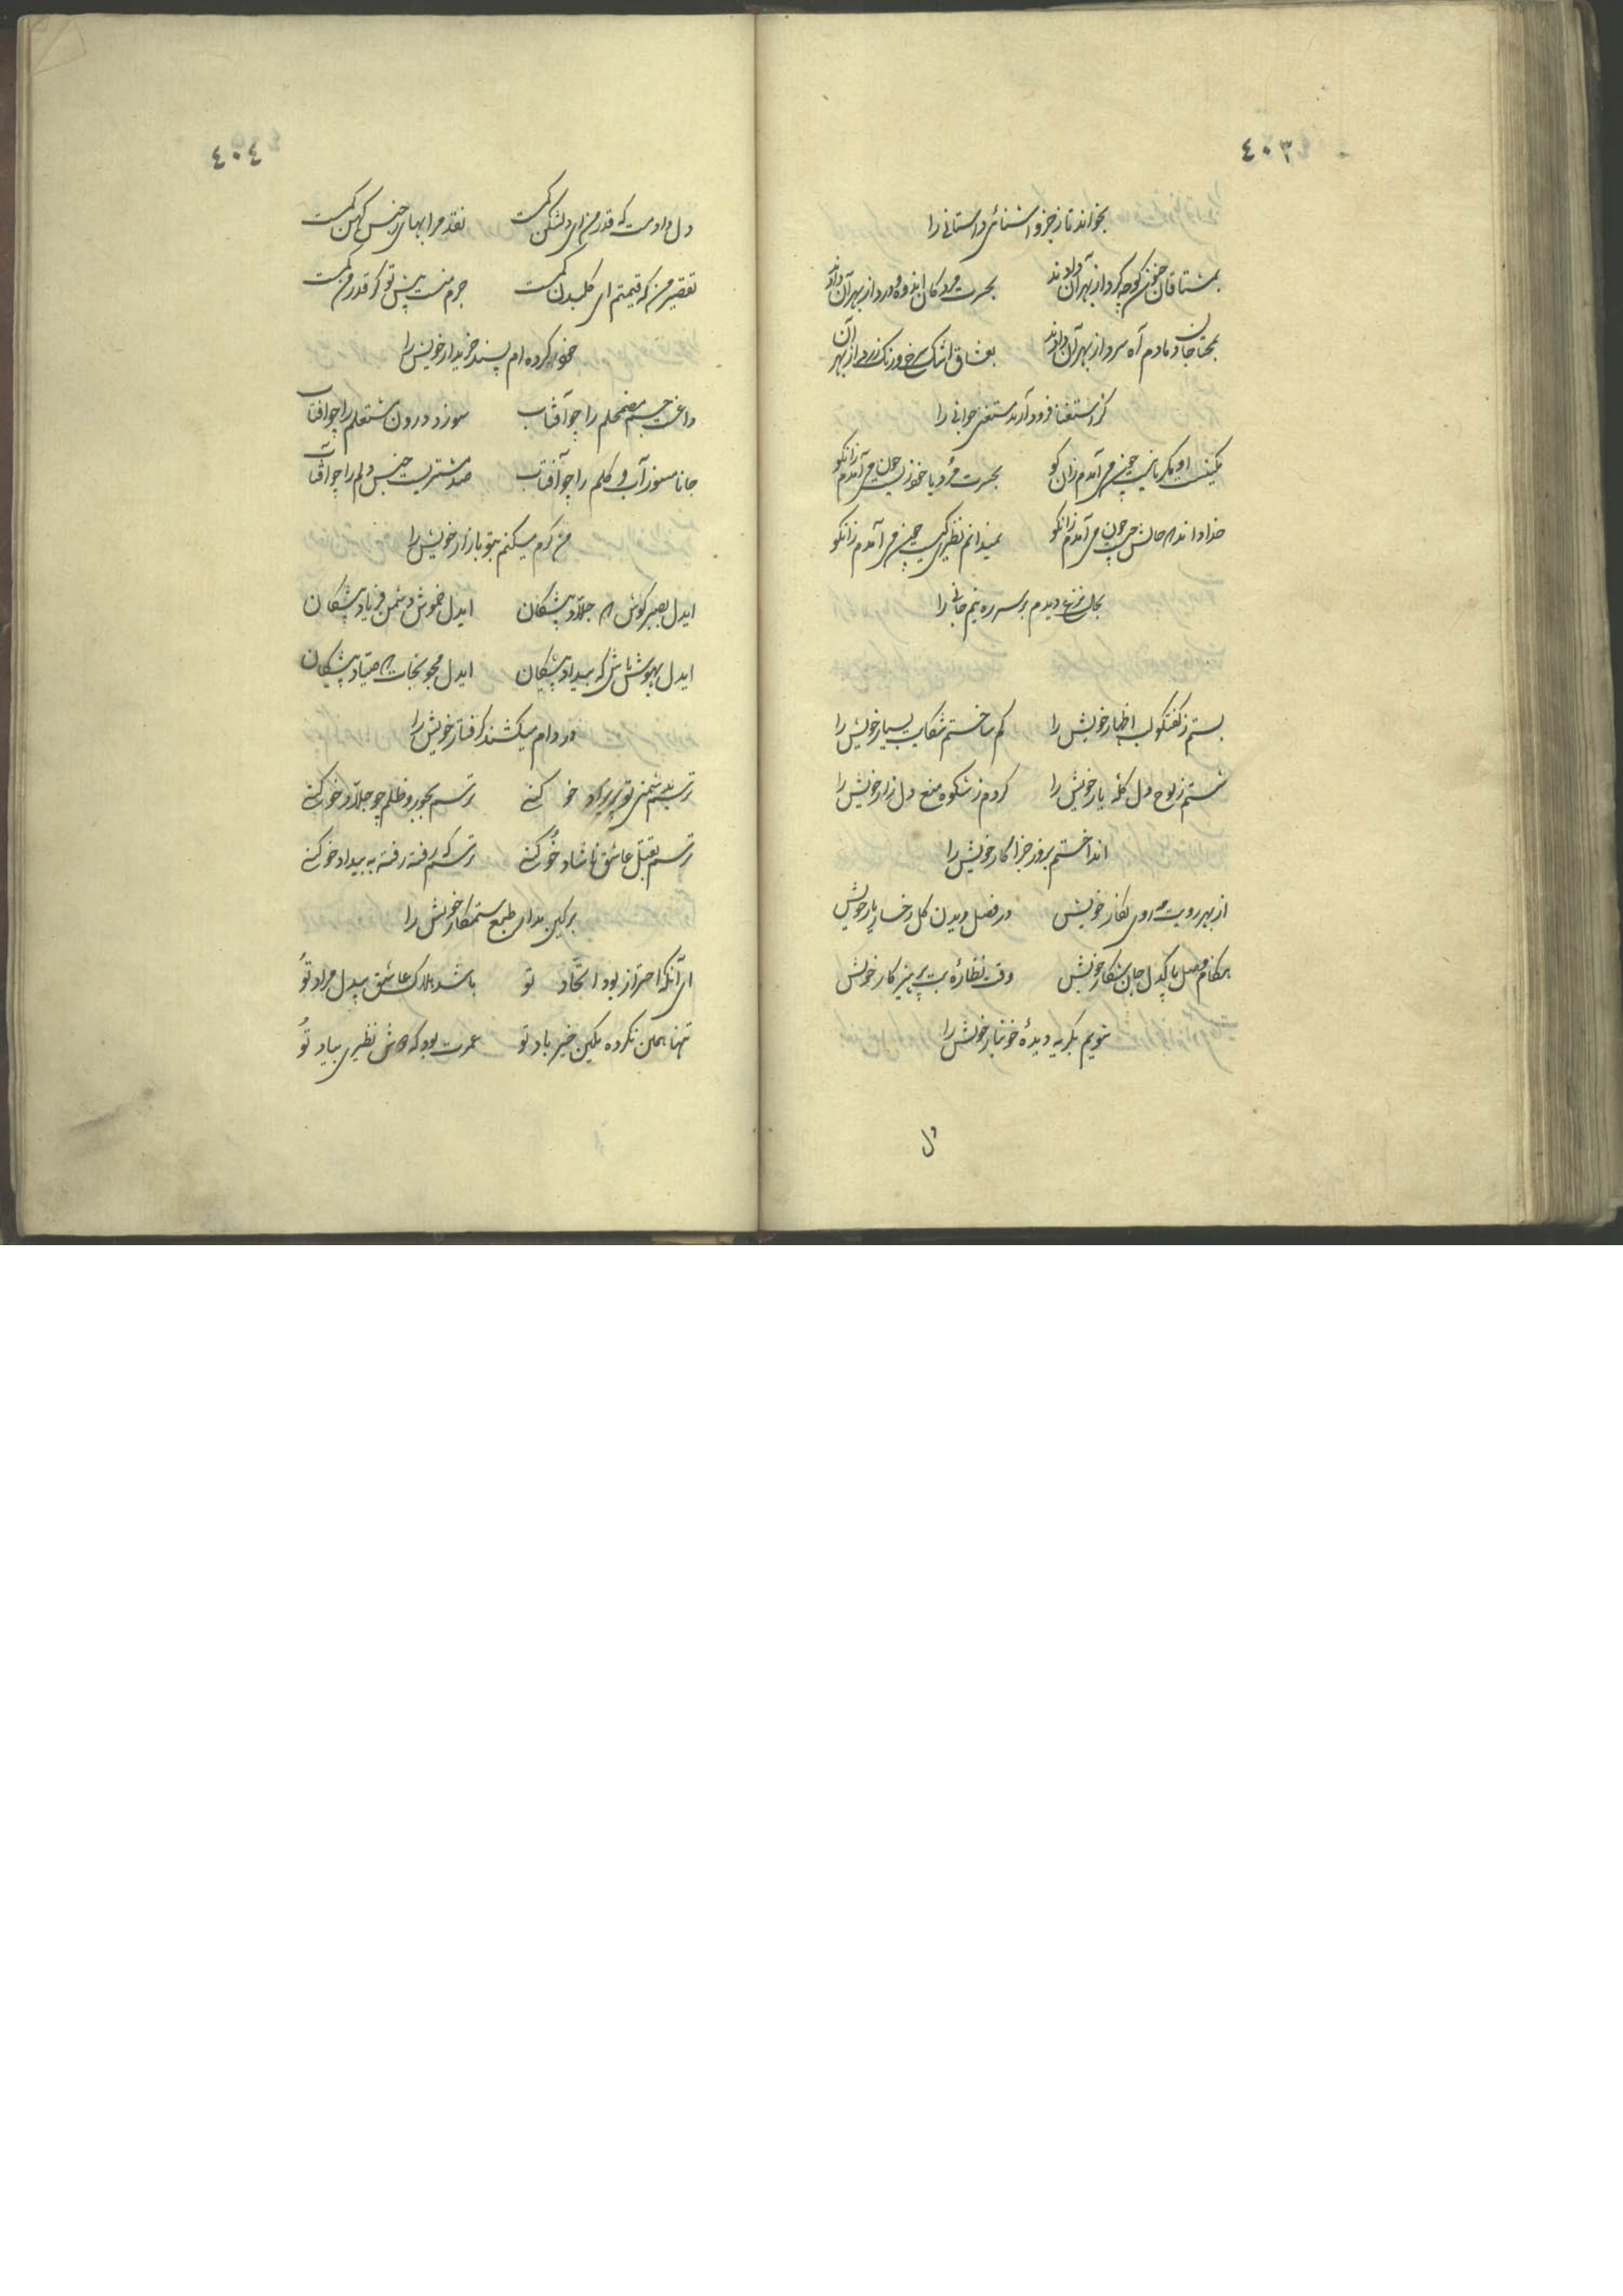 ٤٠٣
بخواند تا ز جزو آشنائی داستانی را
بمشتاقان خون کوچه کرد از بهر آن دادند بحسرت مردکان اندوه و درد از بهر آن دادند
بمحتاجان دمادم آه سرد از بهر آن دادند بعشاق اشک سرخ و رنک زرد از بهر آن
کز استغنا فرود آرند مستغنی جوانی را
چنین می آمدم زان کو بحسرت چون می آمدم زانکو
خدا داند که حالش چون می آمدم زانکو نمیدانم نظیری کیست چون می آمدم زانکو
بحال نزع دیدم بر سر ره نیم جانی را
بستم ز کفتکو لب اظهار خویش را کم ساختم شکایت بسیار خویش را
شستم ز لوح دل کلهٔ یار خویش را کردم ز شکوه منع دل زار خویش را
انداختم بروز جزا کار خویش را
از بهر رویت مه روی نکار خویش در فصل دیدن کل رخسار یار خویش
هنکام وصل پاکدل جان شکار خویش وقت نظارهٔ بت پرهیزکار خویش
شویم بکریه دیدهٔ خونبار خویش را
دل
٤٠٤
دل دادمت که قدر من ای دلشکن کمست نقد مرا بهای جنس کهن کمست
تقصیر من که قیمتم ای کلبدن کمست جرم منست پیش تو کر قدر من کمست
خود کرده ام پسند خریدار خویش را
داغیست جسم مضمحلم را چو آفتاب سوزد درون مشتعلم را چو آفتاب
جانا مسوز آب و کلم را چو آفتاب صد مشتریست جنس دلم را چو آفتاب
من کرم میکنم بتو بازار خویش را
ایدل بصبر کوش که جلاد پیشکان ایدل خموش دشمن فریاد پیشکان
ایدل بهوش باش که بیداد پیشکان ایدل مجو نجات که صیاد پیشکان
در دام میکشند کرفتار خویش را
ترسم بدشمنی تو پریزاد خو کنی ترسم بجور و ظلم چو جلاد خو کنی
ترسم بقتل عاشق ناشاد خو کنی ترسم که رفته رفته به بیداد خو کنی
بر کین مدار طبع ستمکار خویش را
ای آنکه احتراز بود اتحاد تو باشد هلاک عاشق بیدل مراد تو
تنها همین نکرده مکین خیرباد تو عمریست بود که مش نظیری بیاد تو